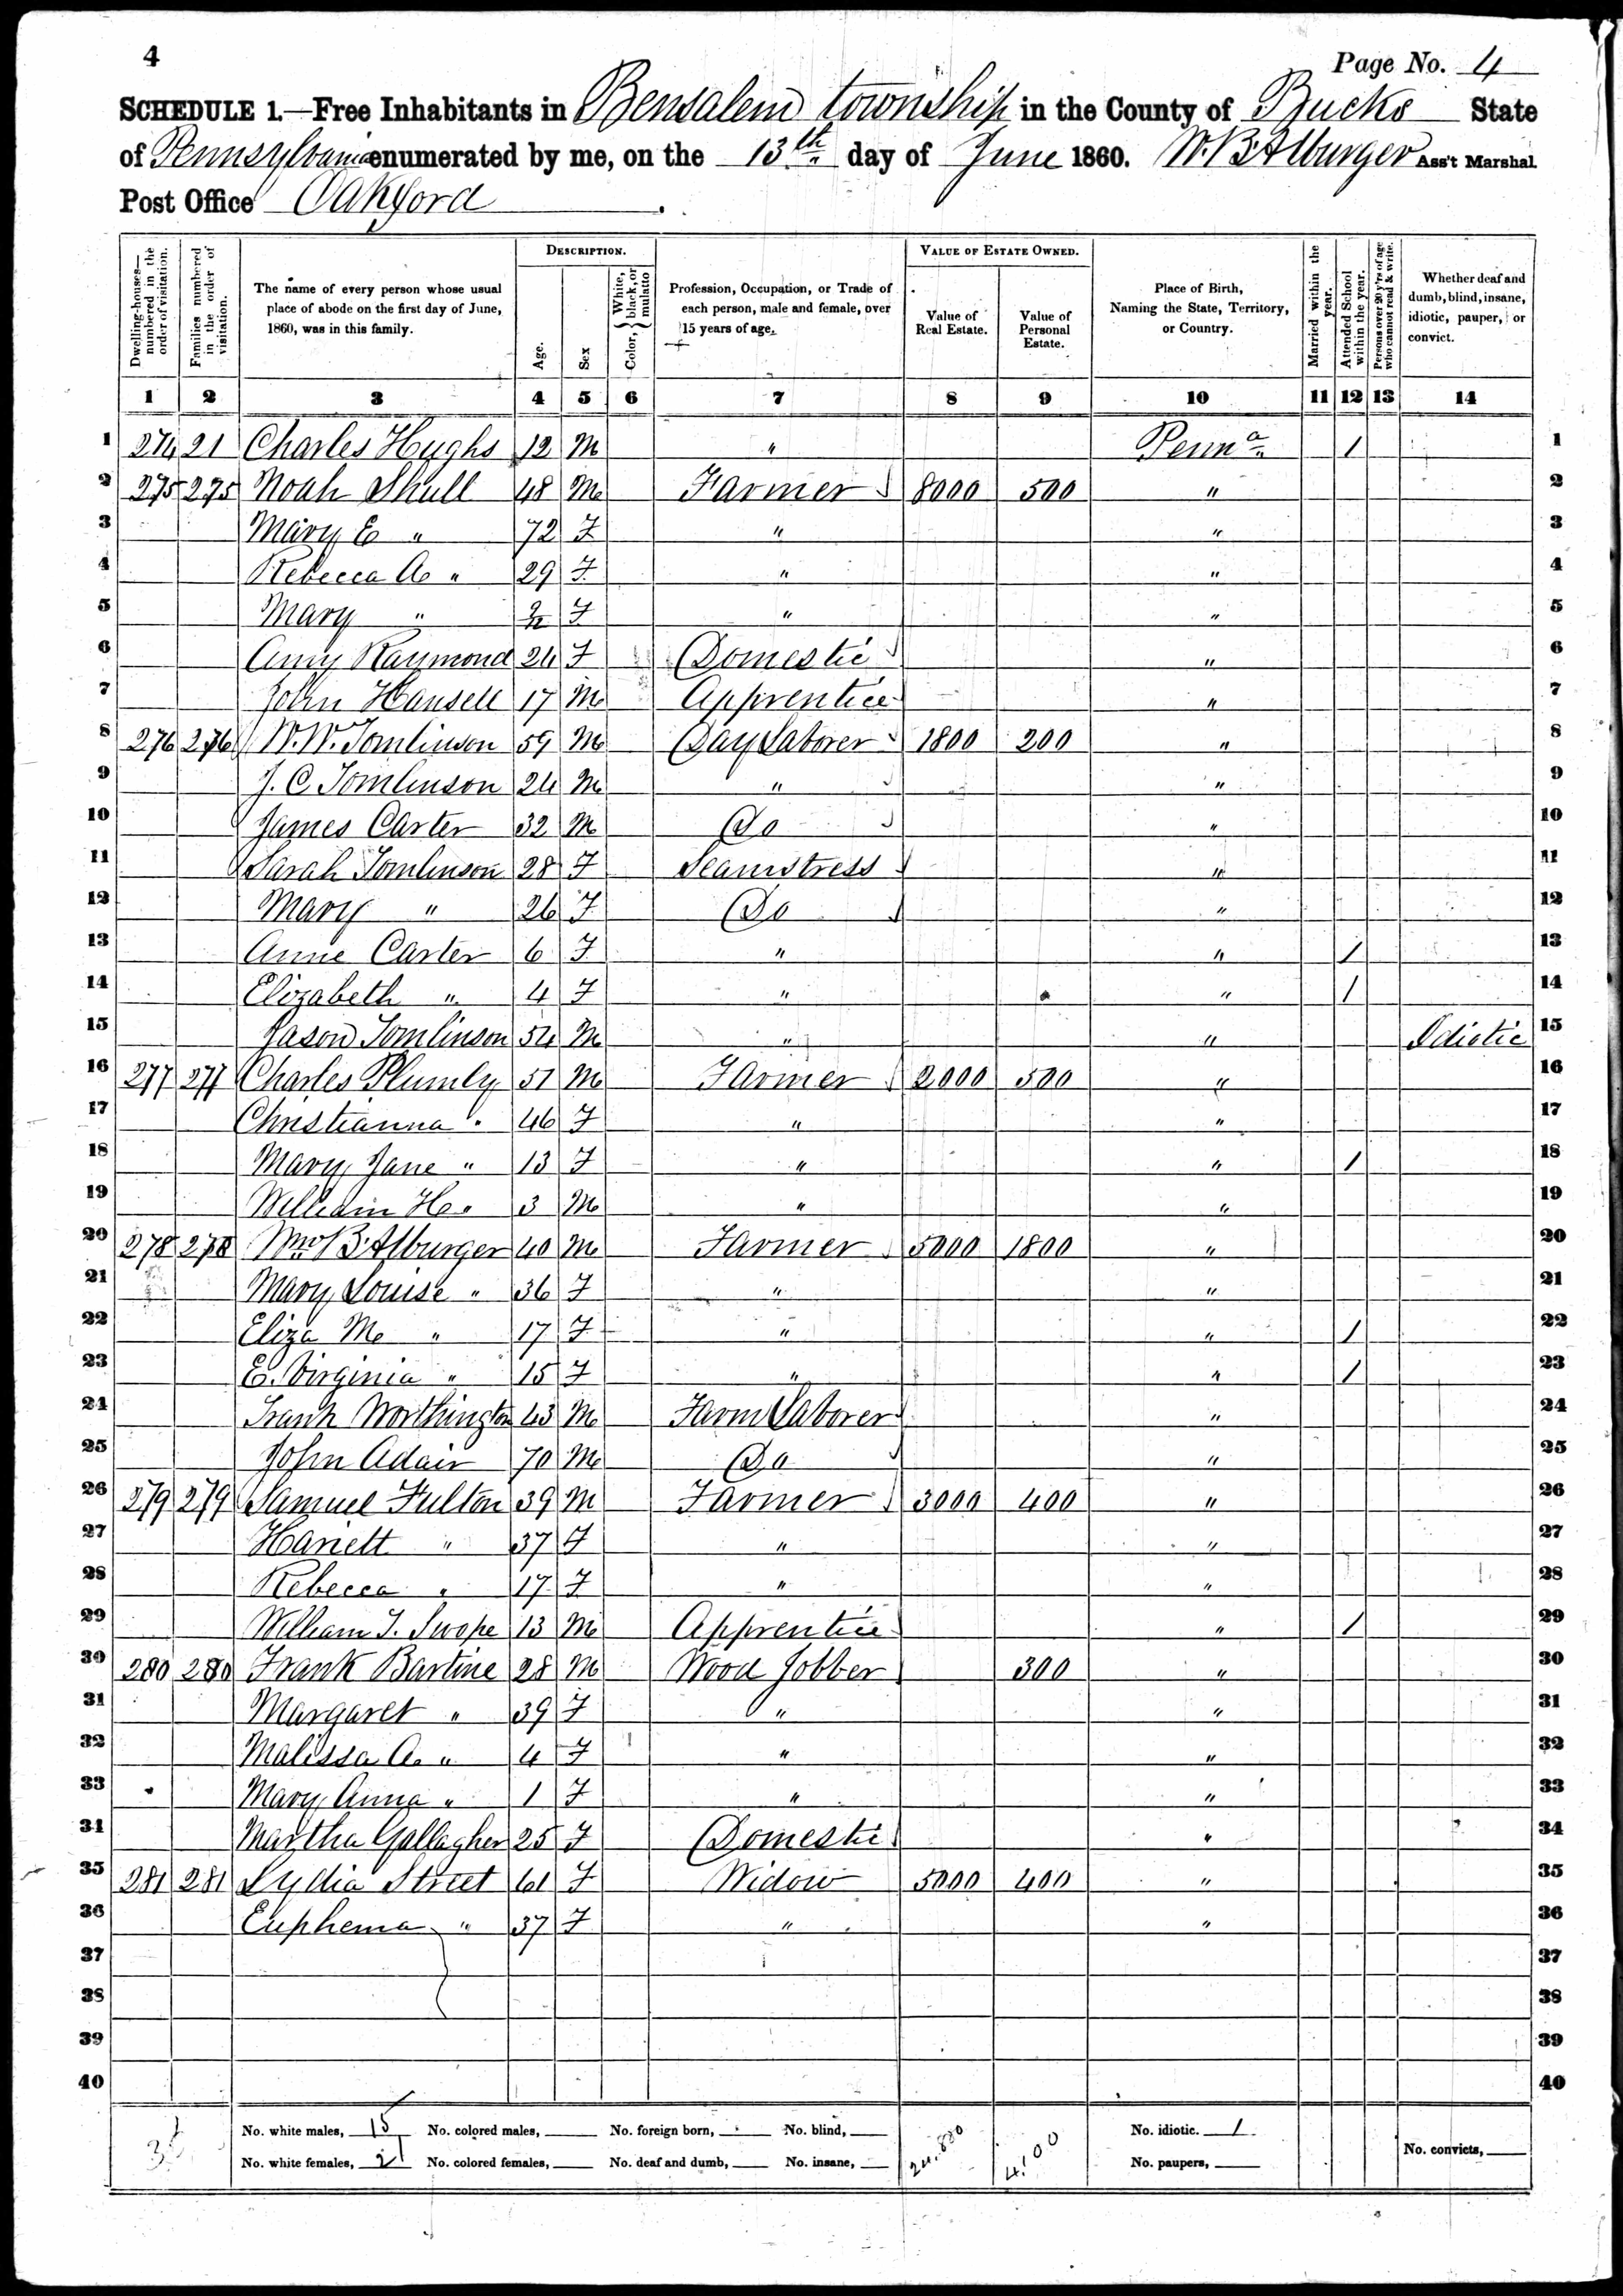 4
Page No. 4
SCHEDULE 1.—Free Inhabitants in Bensalem township in the County of Bucks State
of Pennsylvania enumerated by me, on the 13th day of June 1860. W. B. Alburger Ass't Marshal.
Post Office Oakford.
DESCRIPTION. VALUE OF ESTATE OWNED.
Dwelling-houses—numbered in the order of visitation. Families numbered in the order of visitation. The name of every person whose usual place of abode on the first day of June, 1860, was in this family. Age. Sex Color, { White, black, or mulatto Profession, Occupation, or Trade of each person, male and female, over 15 years of age. Value of Real Estate. Value of Personal Estate. Place of Birth, Naming the State, Territory, or Country. Married within the year. Attended School within the year. Persons over 20 y'rs of age who cannot read & write. Whether deaf and dumb, blind, insane, idiotic, pauper, or convict.
1 2 3 4 5 6 7 8 9 10 11 12 13 14
1 274 21 Charles Hughs 12 M " Penna 1 1
2 275 275 Noah Shull 48 M Farmer 8000 500 " 2
3 Mary E " 72 F " " 3
4 Rebecca A " 29 F " " 4
5 Mary " F " " 5
6 Amy Raymond 24 F Domestic " 6
7 John Hansell 17 M Apprentice " 7
8 276 276 W. W. Tomlinson 59 M Day Laborer 1800 200 " 8
9 J. C. Tomlinson 24 M " " 9
10 James Carter 32 M Do " 10
11 Sarah Tomlinson 28 F Seamstress " 11
12 Mary " 26 F Do " 12
13 Anne Carter 6 F " " 1 13
14 Elizabeth " 4 F " " 1 14
15 Jason Tomlinson 54 M " " Idiotic 15
16 277 277 Charles Plumly 51 M Farmer 2000 500 " 16
17 Christianna " 46 F " " 17
18 Mary Jane " 13 F " " 1 18
19 William H " 3 M " " 19
20 278 278 Wm B. Alburger 40 M Farmer 5000 1800 " 20
21 Mary Louise " 36 F " " 21
22 Eliza M " 17 F " " 1 22
23 E. Virginia " 15 F " " 1 23
24 Frank Worthington 43 M Farm Laborer " 24
25 John Adair 70 M Do " 25
26 279 279 Samuel Fulton 39 M Farmer 3000 400 " 26
27 Hariett " 37 F " " 27
28 Rebecca " 17 F " " 28
29 William T. Swope 13 M Apprentice " 1 29
30 280 280 Frank Bartine 28 M Wood Jobber 300 " 30
31 Margaret " 39 F " " 31
32 Malissa A " 4 F " " 32
33 Mary Anna " 1 F " " 33
34 Martha Gallagher 25 F Domestic " 34
35 281 281 Lydia Street 61 F Widow 5000 400 " 35
36 Euphema " 37 F " " 36
37 37
38 38
39 39
40 40
No. white males, 15 No. colored males, No. foreign born, No. blind, 24,800 4,100 No. idiotic. 1
No. white females, 21 No. colored females, No. deaf and dumb, No. insane, No. paupers, No. convicts,